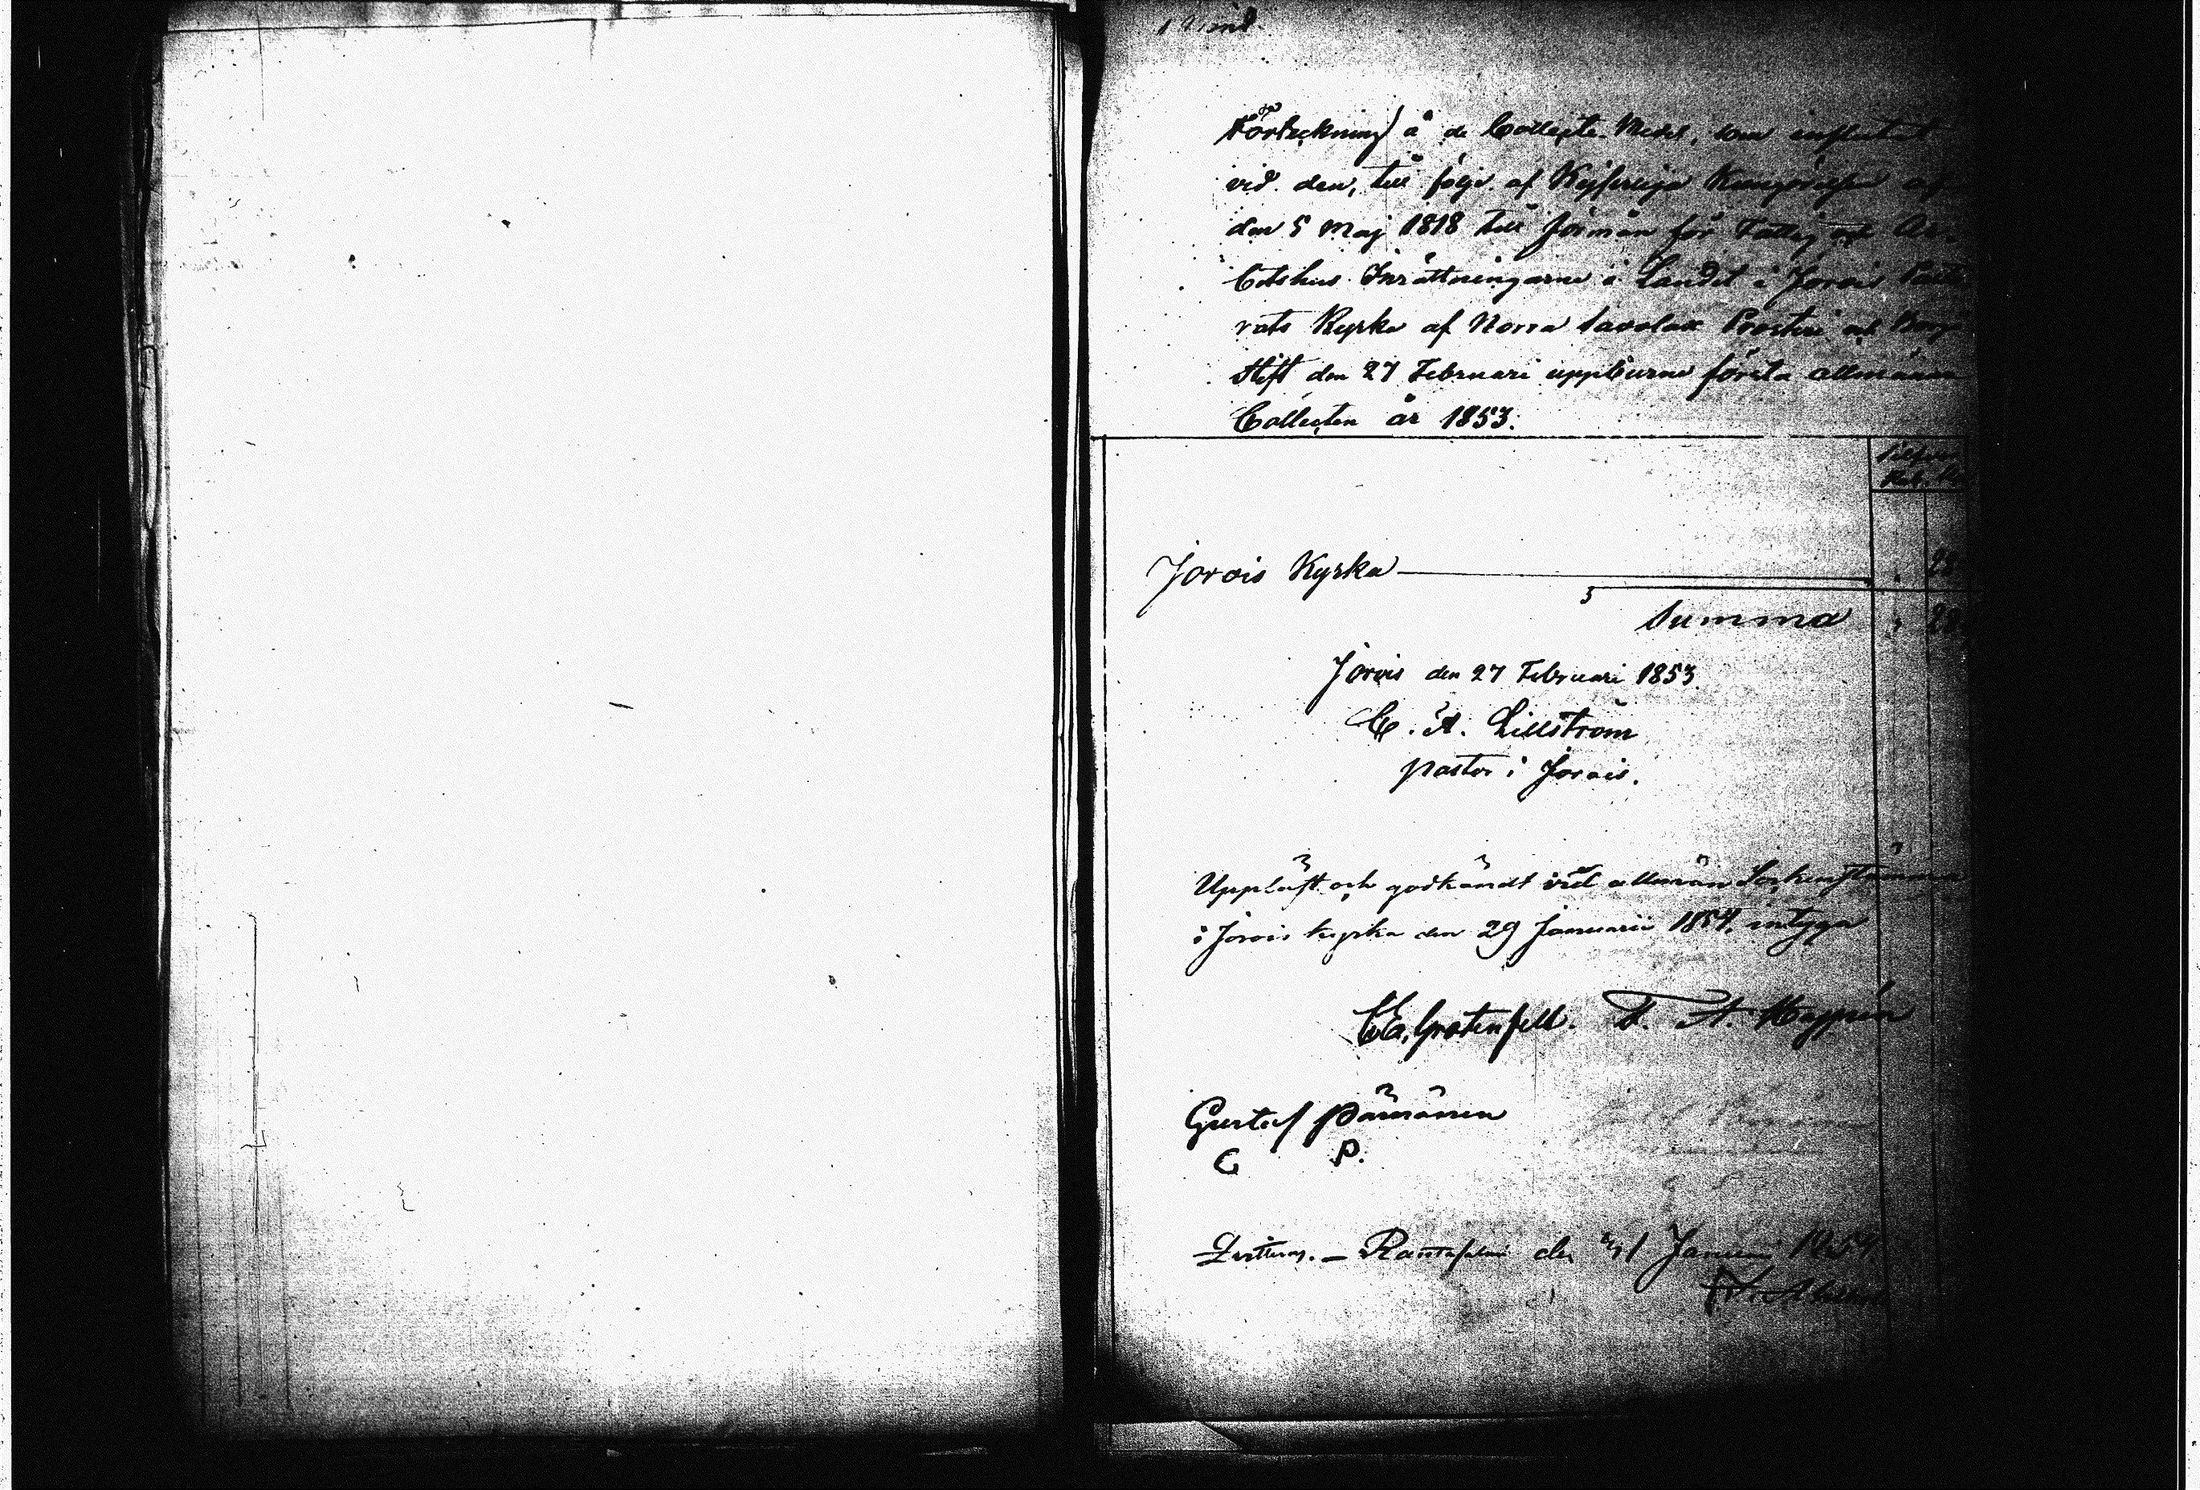 Förteckning å de Collecte Medel, som influtit
vid den, till följe af Kejserliga Kungörelsen af
den 5 Maj 1818 till förmån för Fattig och Ar-
betshus Inrättningarne i Landet i Jorois Pasto
rats Kyrka af Norra Savolax Prosteri och Borgå
Stift den 27 Februari uppburne första allmänna
Collecten år 1853.
Silfver
Rub. K
Jorois Kyrka 28
Summa 28
Jorois den 27 Februari 1853
C. A. Lillström
pastor i Jorois.
Uppläst och godkändt vid allmän Sockenstämma
i Jorois kyrka den 29 Januarii 1854, intyga
Grotenfelt. A.
Gustaf Pärnänen
C P.
Rantasalmi den 31 Januari 1854